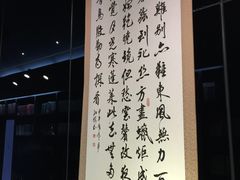 難別亦難東風無力百
到死丝方盡蠟炬成
乾曉鏡但愁雲鬢改夜
覺月光寒蓬萊此去無多
青鳥殷勤為探看